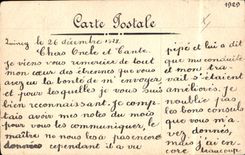 1929
Carte Postale
le 26 décembre 1928.
Chers Oncle et Tante.
Je viens vous remercier de tout
mon cœur des étrennes que vous
avez eu la bonté de m'envoyer
et pour lesquelles je vous suis
bien reconnaissant. Je comp-
tais avoir mes notes du mois
pour vous les communiquer, le
maître ne nous les a pas encore
données cependant il a vu
pépé et lui a dit
que ma conduite
et mon tra-
vail s'étaient
améliorés. Je
n'oublie pas
les bons conseils
que vous m'a-
vez donnés,
mais j'ai en-
core beaucoup